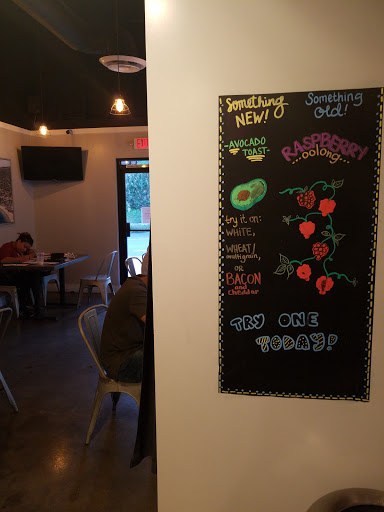 Something NEW!
-AVOCADO TOAST-
try it on:
WHITE,
WHEAT/
multigrain,
OR
BACON
and
cheddar
Something old!
RASPBERRY
..oolong...
TRY ONE
TODAY!